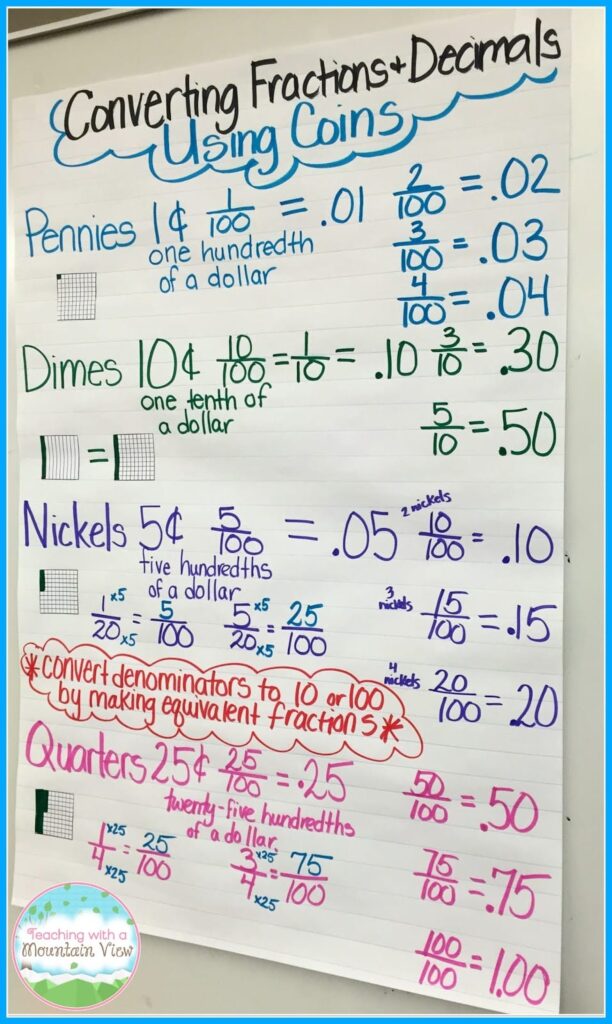 Converting Fractions + Decimals
Using Coins
Pennies 1¢ 1/100 = .01
one hundredth
of a dollar
2/100 = .02
3/100 = .03
4/100 = .04
Dimes 10¢ 10/100 = 1/10 = .10
one tenth of
a dollar
=
3/10 = .30
5/10 = .50
Nickels 5¢ 5/100 = .05
five hundredths
of a dollar
1/20 x5 x5 = 5/100 5/20 x5 x5 = 25/100
2 nickels 10/100 = .10
3 nickels 15/100 = .15
4 nickels 20/100 = .20
*convert denominators to 10 or 100
by making equivalent fractions*
Quarters 25¢ 25/100 = .25
twenty-five hundredths
of a dollar.
1/4 x25 x25 = 25/100 3/4 x25 x25 = 75/100
50/100 = .50
75/100 = .75
100/100 = 1.00
Teaching with a
Mountain View